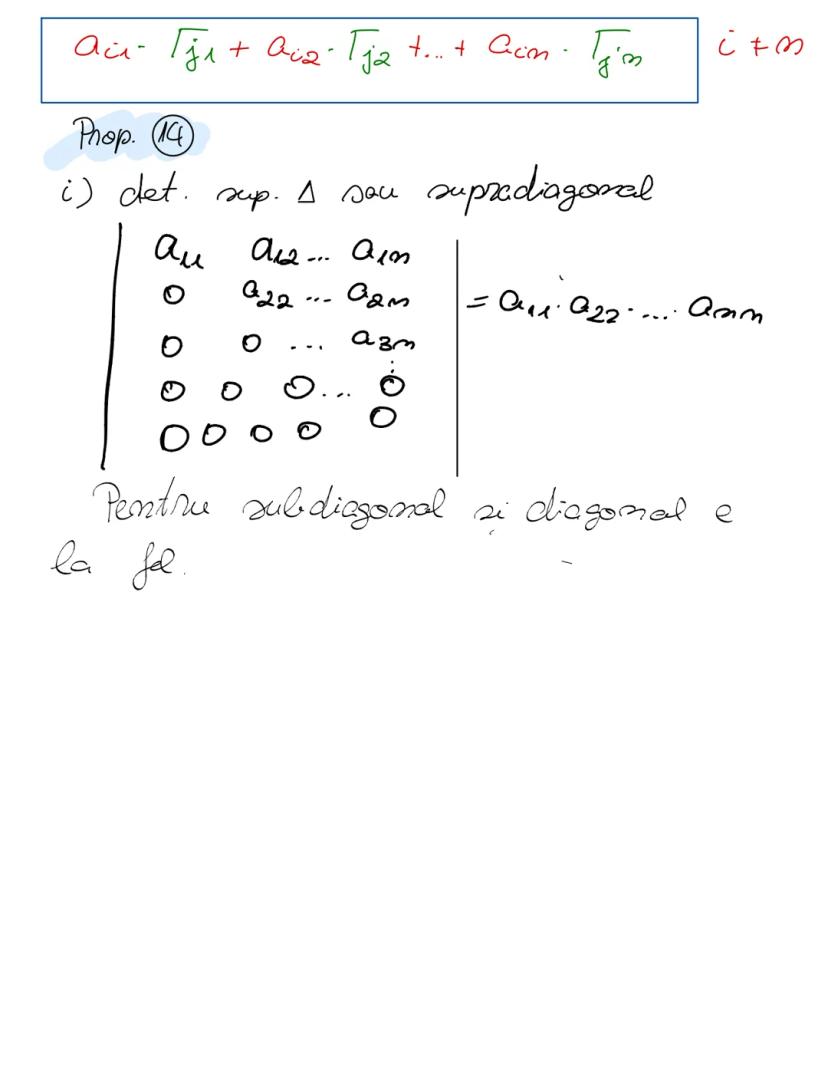 ai1 · Γj1 + ai2 · Γj2 + ... + ain · Γjn i ≠ n
Prop. 14
i) det. sup. Δ sau supradiagonal
a11 a12 ... a1n
0 a22 ... a2n = a11 · a22 · ... · ann
0 0 ... a3n
0 0 0 ... 0
0 0 0 0 0
Pentru subdiagonal și diagonal e
la fel.